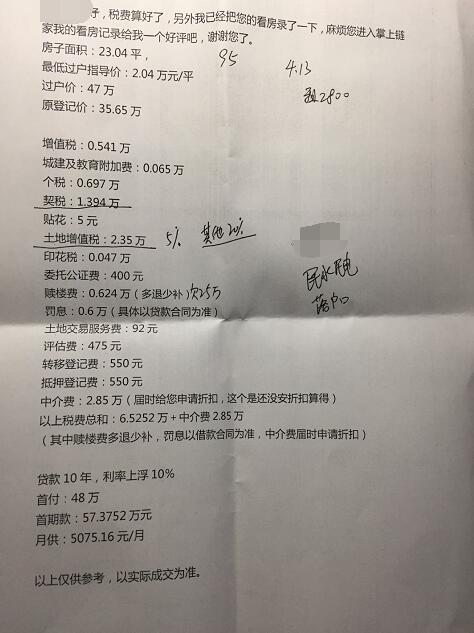 好，税费算好了，另外我已经把您的看房录了一下，麻烦您进入掌上链
家我的看房记录给我一个好评吧，谢谢您了。
房子面积：23.04 平， 95 4.13
最低过户指导价：2.04 万元/平
过户价：47 万 2800
原登记价：35.65 万
增值税：0.541 万
城建及教育附加费：0.065 万
个税：0.697 万
契税：1.394 万
贴花：5 元
土地增值税：2.35 万 5% 其他20%
印花税：0.047 万
委托公证费：400 元 民水民电
赎楼费：0.624 万（多退少补）欠25万
罚息：0.6 万（具体以贷款合同为准） 落户口
土地交易服务费：92 元
评估费：475 元
转移登记费：550 元
抵押登记费：550 元
中介费：2.85 万（届时给您申请折扣，这个是还没安折扣算得）
以上税费总和：6.5252 万＋中介费 2.85 万
（其中赎楼费多退少补，罚息以借款合同为准，中介费届时申请折扣）
贷款 10 年，利率上浮 10%
首付：48 万
首期款：57.3752 万元
月供：5075.16 元/月
以上仅供参考，以实际成交为准。